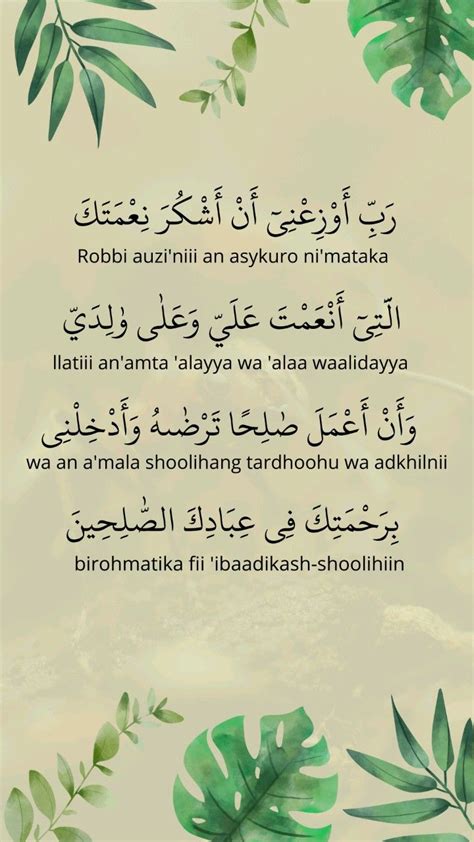 رَبِّ أَوْزِعْنِىٓ أَنْ أَشْكُرَ نِعْمَتَكَ
Robbi auzi'niii an asykuro ni'mataka
الَّتِىٓ أَنْعَمْتَ عَلَيَّ وَعَلٰى وٰلِدَيَّ
llatiii an'amta 'alayya wa 'alaa waalidayya
وَأَنْ أَعْمَلَ صٰلِحًا تَرْضٰىهُ وَأَدْخِلْنِى
wa an a'mala shoolihang tardhoohu wa adkhilnii
بِرَحْمَتِكَ فِى عِبَادِكَ الصّٰلِحِينَ
birohmatika fii 'ibaadikash-shoolihiin